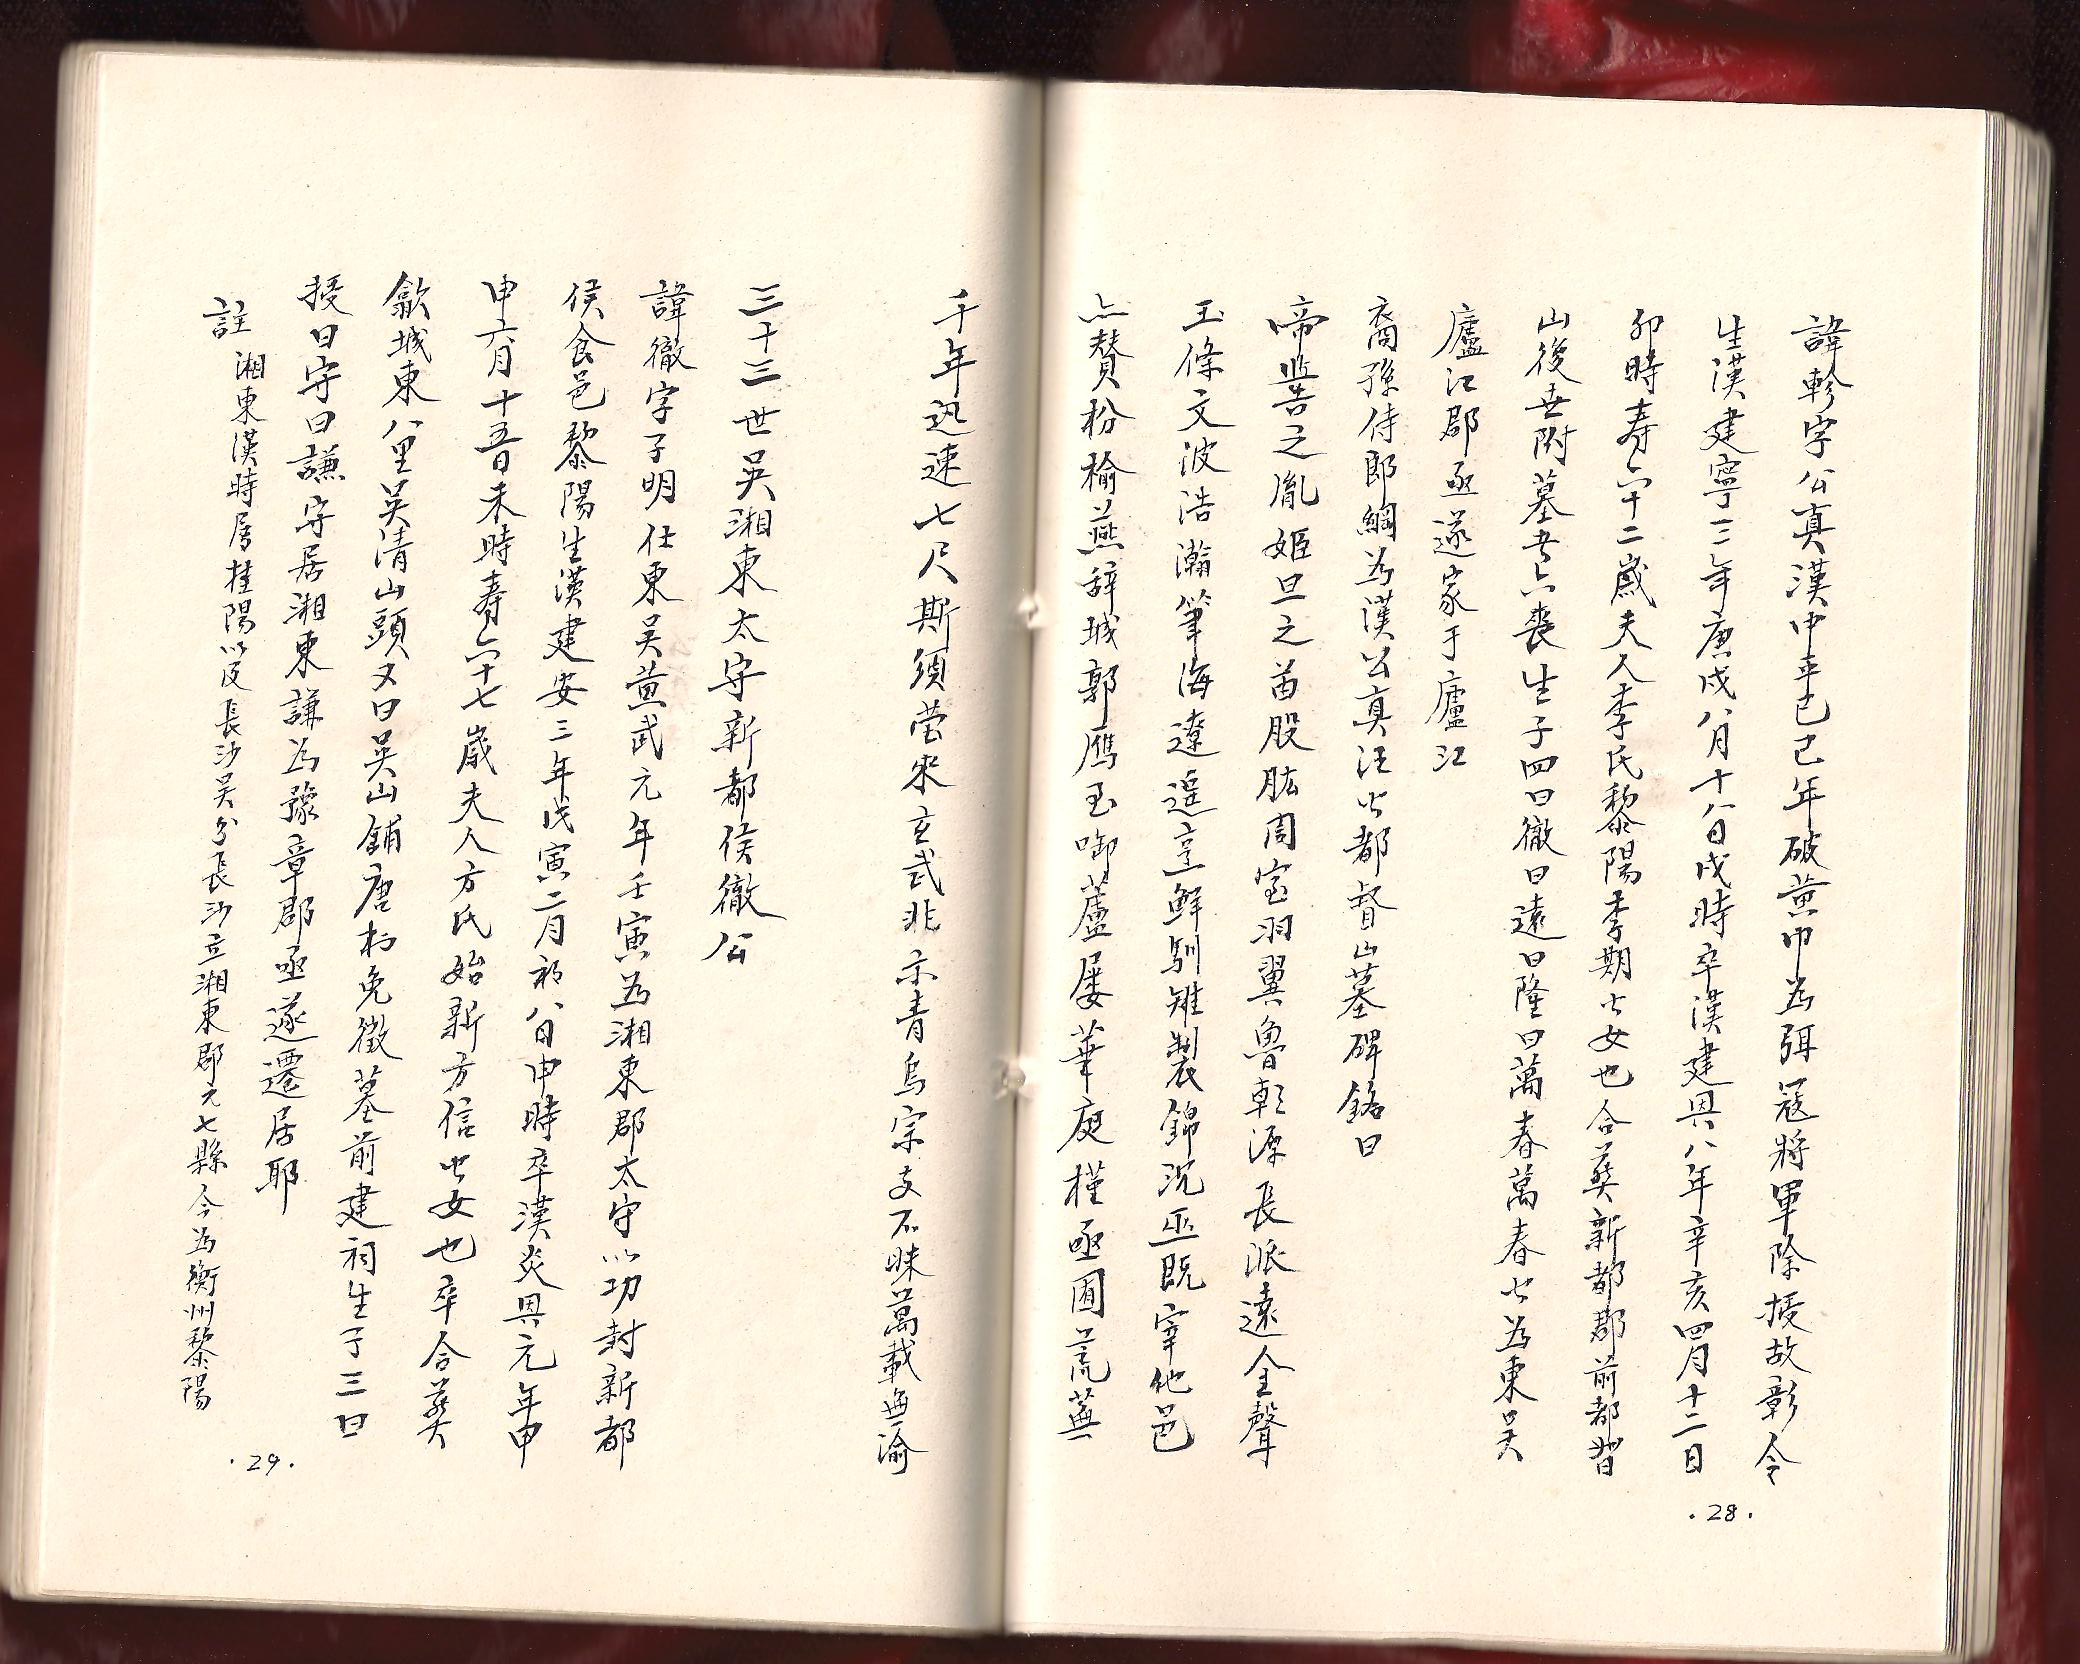 諱軫字公真漢中平己巳年破黃巾為弭寇將軍除授故彰令
生漢建寧三年庚戌八月十八日戌時卒漢建興八年辛亥四月十二日
卯時寿六十二歲夫人李氏黎陽李期公女也合葬新都郡前都
山後世附墓公喪生子四曰徹曰遠曰隆曰萬春萬春公為東吴
廬江郡丞遂家于廬江
裔孫侍郎綱為漢公真汪公都督山墓碑銘曰
帝嚳之胤姬旦之苗股肱周室羽翼魯朝源長派遠金聲
玉條文波浩瀚筆海遼遥烹鮮馴雉製錦沉巫既宰他邑
亦贊枌榆燕辞城郭鴈玉啣蘆屢華庭槿亟圃荒蕪
千年迅速七尺斯須营宋玄武兆示青烏宗支不昧萬載無渝
·28·
三十三世吴湘東太守新都侯徹公
諱徹字子明仕東吴黄武元年壬寅為湘東郡太守以功封新都
侯食邑黎陽生漢建安三年戊寅二月初八日申時卒漢炎興元年甲
申六月十五日未時寿六十七歲夫人方氏始新方信公女也卒合葬
歙城東八里吴清山頭又曰吴山鋪唐初免徵墓前建祠生子三曰
授曰守曰謙守居湘東謙為豫章郡丞遂遷居耶
註 湘東漢時屬桂陽以及長沙吴分長沙立湘東郡元七縣今為衡州黎陽
·29·